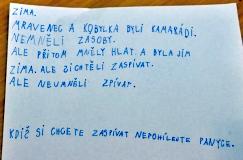 ZIMA.
MRAVENEC A KOBYLKA BYLI KAMARÁDI.
NEMNĚLI ZÁSOBY.
ALE PŘITOM MNĚLY HLAT. A BYLA JÍM
ZIMA. ALE ZICHTĚLI ZASPÍVAT.
ALE NEUMNĚLI ZPÍVAT.
KDIŽ SI CHCETE ZASPÍVAT NEPOHILEJTE PANYCE.